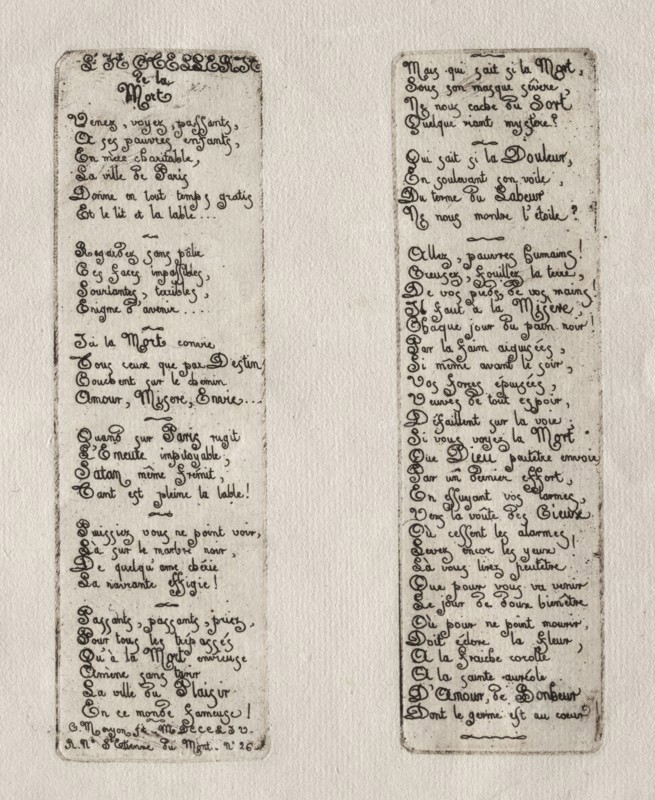 L'HOTELLERIE
de la
Mort
Venez, voyez, passants,
A ses pauvres enfants,
En mère charitable,
La ville de Paris
Donne en tout temps gratis
Et le lit et la table...
Regardez sans pâlir
Ces faces impassibles,
Souriantes, terribles,
Enigme d'avenir....
Ici la Mort convie
Tous ceux que par Destin
Couchent sur le chemin
Amour, Misère, Envie...
Quand sur Paris rugit
L'Emeute impitoyable,
Satan même frémit,
Tant est pleine la table!
Puissiez vous ne point voir,
Là sur le marbre noir,
De quelqu'ame chérie
La navrante effigie!
Passants, passants, priez,
Pour tous les trépassés
Qu'à la Mort envieuse
Amène sans
La ville du Plaisir
En ce monde fameuse!
C. Meryon ft. MDCCCLIV.
R. Nve St Etienne du Mont. No 26.
Mais qui sait si la Mort,
Sous son masque sévère,
Ne nous cache du Sort
Quelque riant mystère?
Qui sait si la Douleur,
En soulevant son voile,
Du terme du Labeur
Ne nous montre l'étoile?
Allez, pauvres humains!
Creusez, fouillez la terre,
De vos pieds, de vos mains!
Il faut à la Misère,
Chaque jour du pain noir!
Par la faim aiguisées,
Si même avant le soir,
Vos forces épuisées,
Veuves de tout espoir,
Défaillent sur la voie;
Si vous voyez la Mort
Que Dieu peutêtre envoie
Par un dernier effort,
En essuyant vos larmes,
Vers la voûte des Cieux
Où cessent les alarmes,
Levez encor les yeux!
Là vous lirez peutêtre
Que pour vous va venir
Le jour de doux bienêtre
Où pour ne point mourir,
Doit éclore la fleur,
A la fraiche corolle
A la sainte auréole
D'Amour, de Bonheur
Dont le germe est au coeur